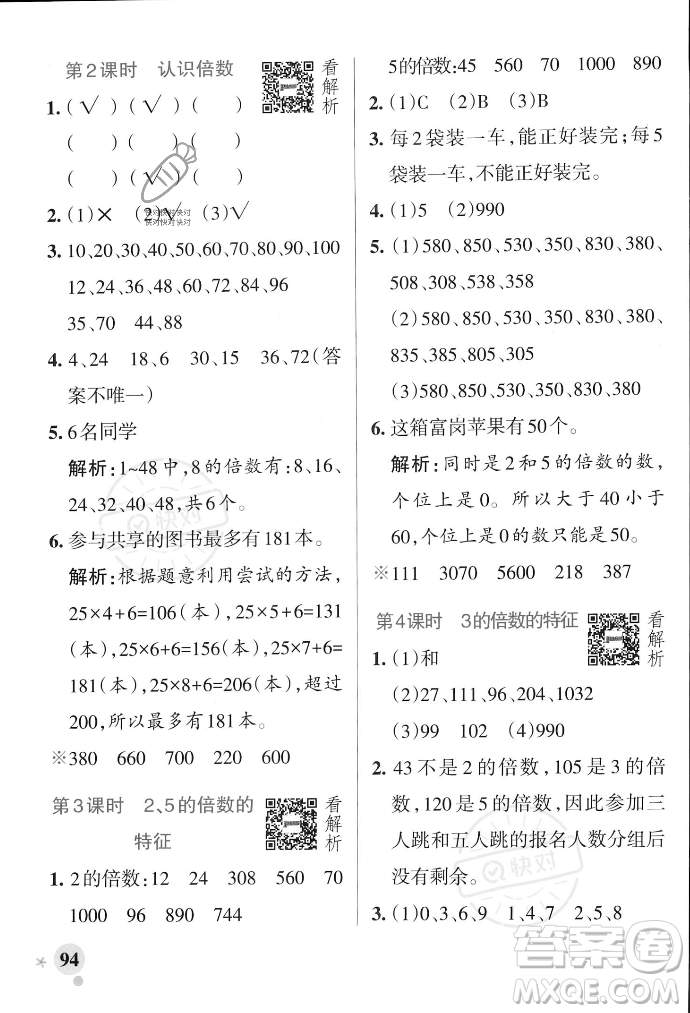 第2课时 认识倍数
看解析
1.(√)(√)( )
( )( )( )
( )(√)( )
2.(1)× (2)√ (3)√
3.10、20、30、40、50、60、70、80、90、100
12、24、36、48、60、72、84、96
35、70 44、88
4.4、24 18、6 30、15 36、72(答
案不唯一)
5.6名同学
解析:1~48中,8的倍数有:8、16、
24、32、40、48,共6个。
6.参与共享的图书最多有181本。
解析:根据题意利用尝试的方法,
25×4+6=106(本),25×5+6=131
(本),25×6+6=156(本),25×7+6=
181(本),25×8+6=206(本),超过
200,所以最多有181本。
※380 660 700 220 600
第3课时 2、5的倍数的
特征
看解析
1.2的倍数:12 24 308 560 70
1000 96 890 744
94
5的倍数:45 560 70 1000 890
2.(1)C (2)B (3)B
3.每2袋装一车,能正好装完;每5
袋装一车,不能正好装完。
4.(1)5 (2)990
5.(1)580、850、530、350、830、380、
508、308、538、358
(2)580、850、530、350、830、380、
835、385、805、305
(3)580、850、530、350、830、380
6.这箱富岗苹果有50个。
解析:同时是2和5的倍数的数,
个位上是0。所以大于40小于
60,个位上是0的数只能是50。
※111 3070 5600 218 387
第4课时 3的倍数的特征
看解析
1.(1)和
(2)27、111、96、204、1032
(3)99 102 (4)990
2.43不是2的倍数,105是3的倍
数,120是5的倍数,所以参加三
人跳和五人跳的报名人数分组后
没有剩余。
3.(1)0、3、6、9 1、4、7 2、5、8
快对
快对
快对快对快对
快对快对快对
答案圈
MXQE.COM